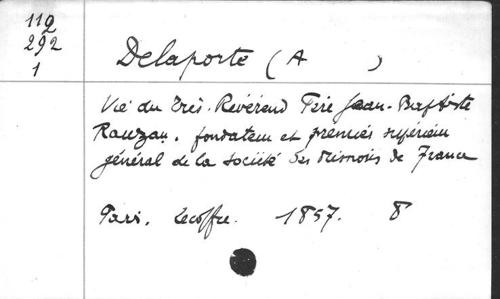 112
292
1
Delaporte (A )
Vie du Très-Révérend Père Jean-Baptiste
Rauzan, fondateur et premier supérieur
général de la société des Missions de France
Paris, Lecoffre. 1857. 8°